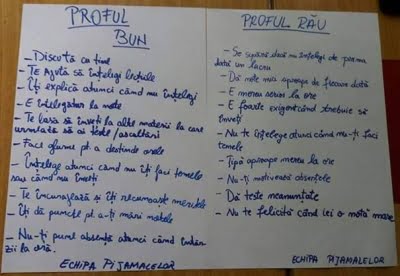 PROFUL
BUN
– Discută cu tine
– Te Ajută să înțelegi lecțiile
– Îți explică atunci când nu înțelegi
– E înțelegător la note
– Te lasă să înveți la alte materii la care
urmează să ai teste/ascultări
– Face glume pt. a destinde orele
– Înțelege atunci când nu îți faci temele
sau când nu înveți
– Te încurajează și îți recunoaște meritele
– Îți dă puncte pt. a-ți mări notele
– Nu-ți pune absență atunci când întâr-
zii la oră.
ECHIPA PIJAMALELOR
PROFUL RĂU
– Se supără dacă nu înțelegi de prima
dată un lucru
– Dă note mici aproape de fiecare dată
– E mereu serios la ore
– E foarte exigent când trebuie să
înveți
– Nu te înțelege atunci când nu-ți faci
temele
– Țipă aproape mereu la ore
– Nu-ți motivează absențele
– Dă teste neanunțate
– Nu te felicită când iei o notă mare
ECHIPA PIJAMALELOR